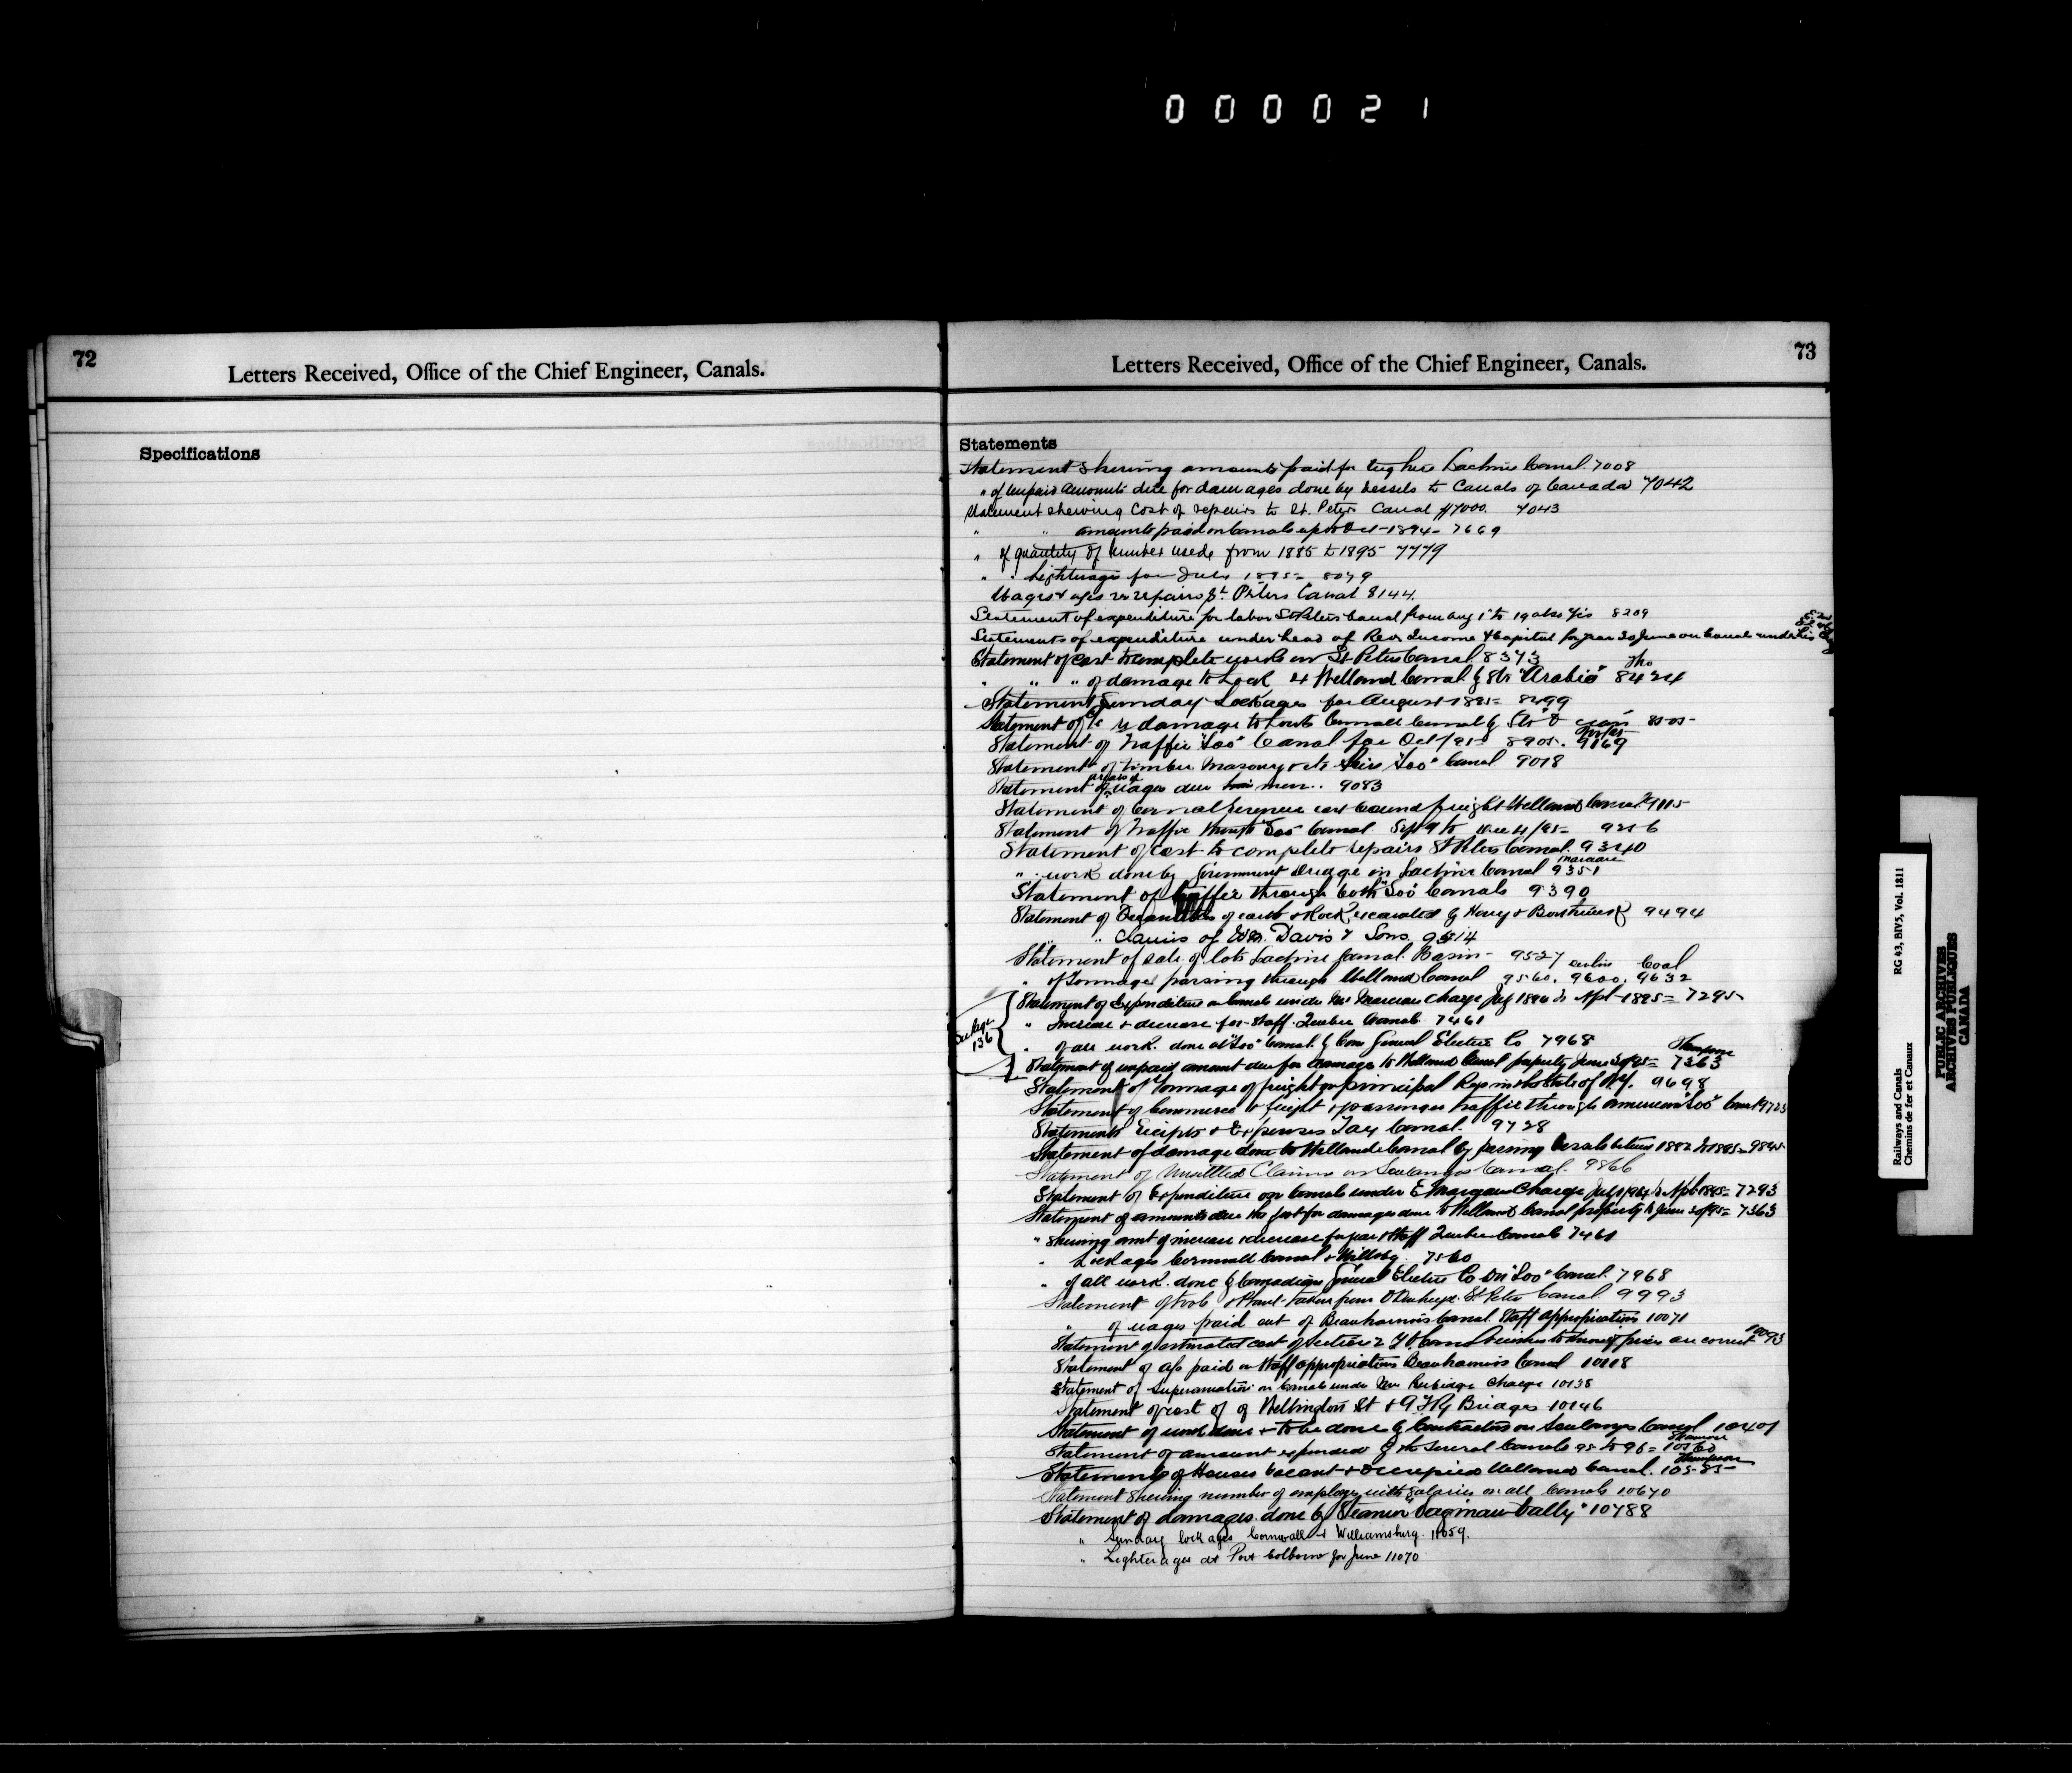 000021
72
Letters Received, Office of the Chief Engineer, Canals.
Specifications
73
Letters Received, Office of the Chief Engineer, Canals.
Statements
Statement shewing amounts paid for tug hire Lachine Canal. 7008
" of unpaid amounts due for damages done by vessels to Canals of Canada 7042
Statement shewing Cost of repairs to St. Peters Canal $7000. 7043
" " amounts paid on Canals up to Oct 1894 - 7669
" of quantity of lumber used from 1885 to 1895 7779
" " Lighterage for July 1895 = 8079
Wages repairs St. Peters Canal 8144.
Statement of expenditure for labor St Peters Canal from Aug 1st to 19 8209
Statements of expenditure under head of Rev Income & Capital for year 30 June on Canals under
Statement of Cost to complete works on St Peters Canal 8373
" " " of damage to Lock 4 Welland Canal by Str "Arabia" 8424
Statement Sunday Lockages for August 1895 = 8499
Statement of damage to Cornwall Canal by Str
Statement of Traffic "Soo" Canal for Oct/95 8905. 9169
Statement of timber masonry etc "Soo" Canal 9018
Statement of wages due men.. 9083
Statement of east bound freight Welland Canal 9115
Statement of Traffic through "Soo" Canal. Sept 9 to Dec 4/95 = 9256
Statement of Cost to complete repairs St Peters Canal. 9340
" work done by Government Dredge in Lachine Canal 9351
Statement of traffic through both "Soo" Canals 9390
Statement of Quantities of earth & Rock excavated by Henry & 9494
" " Claims of Wm. Davis & Sons. 9514
Statement of sale of lots Lachine Canal Basin - 9527
" of Tonnage passing through Welland Canal 9560. 9600. Coal 9632
Statement of Expenditure on Canals under Mr Marceau Charge July 1894 to Apl 1895 = 7295
" Increase & decrease for staff Quebec Canals 7461
136
" of all work done at "Soo" Canal by Can General Electric Co 7968
Statement of unpaid amount due for damage to Welland Canal property June 30/95 = 7363
Thompson
Statement of Tonnage of freight on principal Rys in the State of N.Y. 9698
Statement of Commerce & freight & passenger traffic through American "Soo" Canal 9723
Statements Receipts & Expenses Tay Canal. 9728
Statement of damage done to Welland Canal by passing Vessels between 1882 to 1895 = 9845
Statement of Unsettled Claims on Soulanges Canal. 9866
Statement of Expenditure on Canals under E Marceau Charge July 1/94 to Apl 1895 = 7293
Statement of amounts due the for damages done to Welland Canal property to June 30/95 = 7363
" Shewing amt of increase & decrease for Staff Quebec Canals 7461
" Lockages Cornwall Canal & Willsbg. 7560
" of all work done by Canadian General Electric Co on "Soo" Canal. 7968
Statement of tools & Plant taken from St Peters Canal 9993
" of wages paid out of Beauharnois Canal Staff appropriation 10071
Statement of estimated cost of Section 2 Canal wishes to know if prices are correct 10093
Statement of a/cs paid on Staff appropriation Beauharnois Canal 10118
Statement of Superannuation on Canals under Mr Rubidge Charge 10138
Statement of cost of Wellington St & G T Ry Bridges 10146
Statement of work done & to be done by Contractors on Soulanges Canal 10401
Statement of amount expended by the several Canals 95 to 96 = 10560
Statements of Houses Vacant & Occupied Welland Canal. 10585
Thompson
Statement Shewing number of employes with salaries on all Canals 10670
Statement of damages done by Steamer "Saginaw Vally" 10788
" Sunday lockages Cornwall & Williamsburg. 11059.
" Lighterages at Port Colborne for June 11070
Railways and Canals
Chemins de fer et Canaux
RG 43, BIV5, Vol. 1811
PUBLIC ARCHIVES
ARCHIVES PUBLIQUES
CANADA